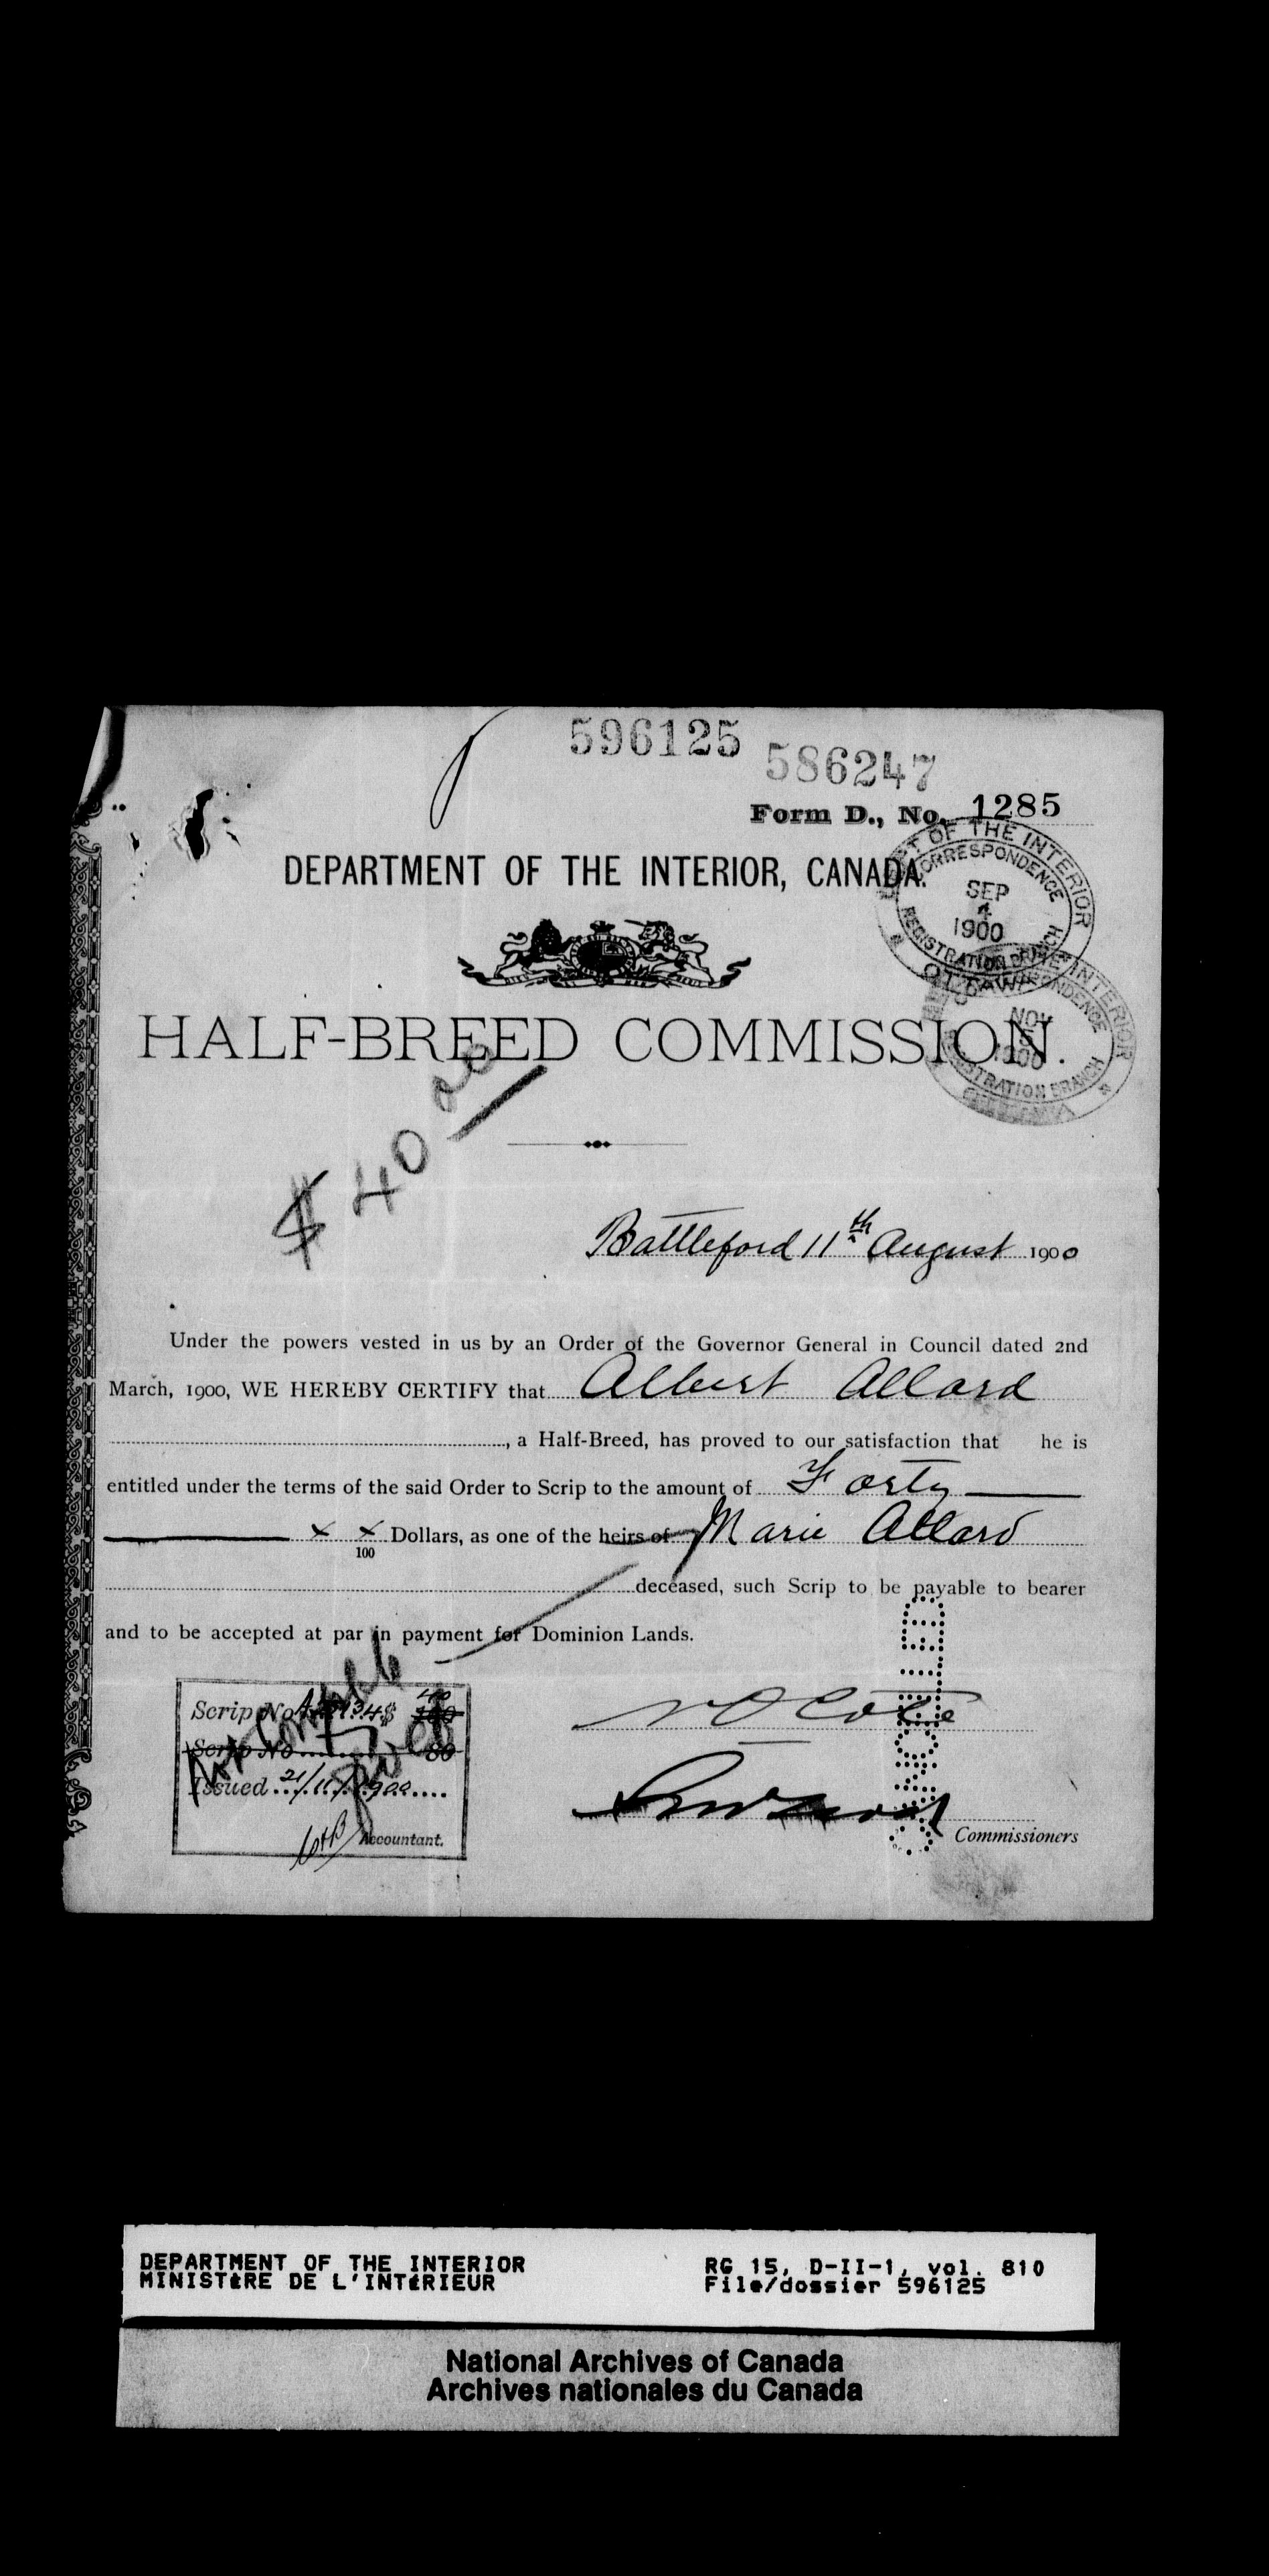 596125
586247
Form D., No. 1285
DEPARTMENT OF THE INTERIOR, CANADA.
DEPT OF THE INTERIOR
CORRESPONDENCE
SEP
4
1900
REGISTRATION BRANCH
OTTAWA
INTERIOR
NOV
1900
REGISTRATION BRANCH
OTTAWA
HALF-BREED COMMISSION.
$ 40 00
Battleford 11th August 1900
Under the powers vested in us by an Order of the Governor General in Council dated 2nd
March, 1900, WE HEREBY CERTIFY that Albert Allard
, a Half-Breed, has proved to our satisfaction that he is
entitled under the terms of the said Order to Scrip to the amount of Forty
x x/100 Dollars, as one of the heirs of Marie Allard
deceased, such Scrip to be payable to bearer
and to be accepted at par in payment for Dominion Lands.
CANCELLED
Scrip No $ 40 160
Scrip No 80
Issued 21/11/1900
Accountant.
Commissioners
DEPARTMENT OF THE INTERIOR
MINISTÈRE DE L'INTÉRIEUR
RG 15, D-II-1, vol. 810
File/dossier 596125
National Archives of Canada
Archives nationales du Canada